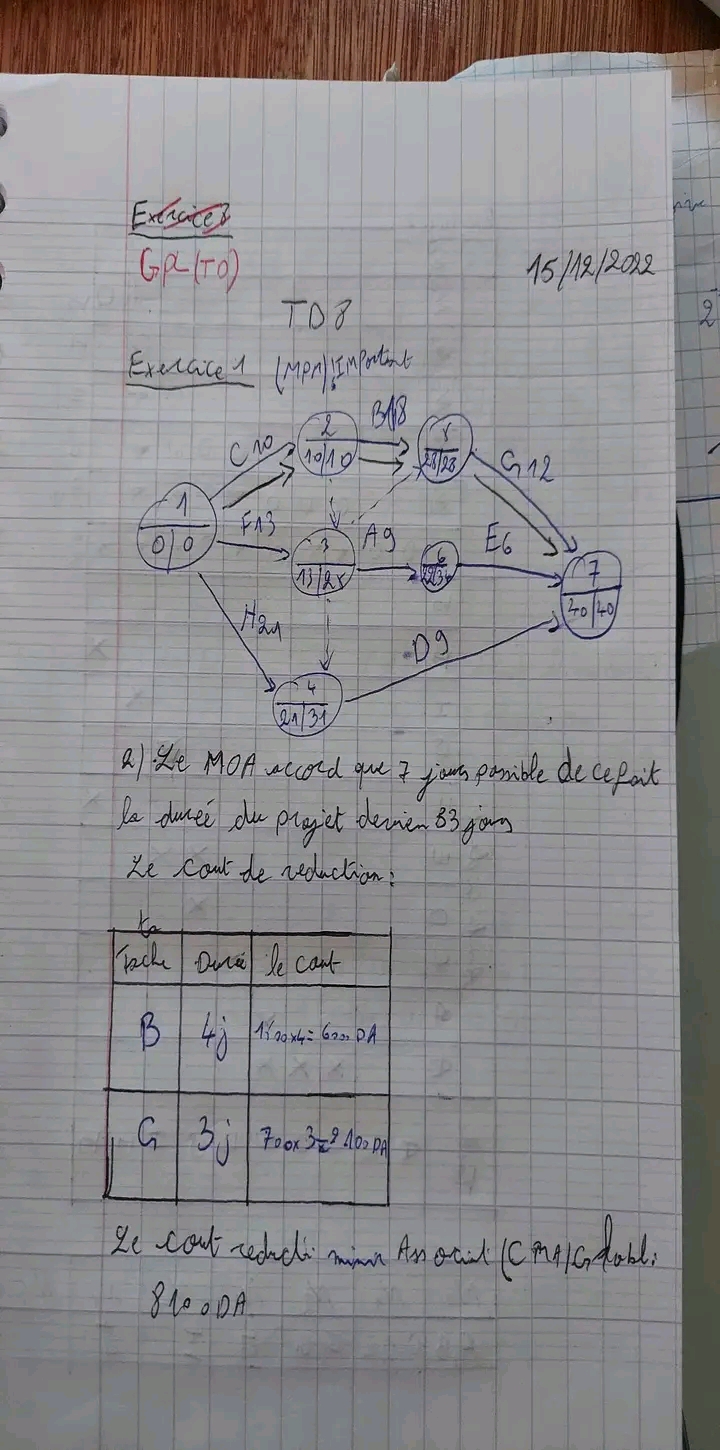 Exercice 8
GP(TD)
15/12/2022
TD 8
Exercice 1 (MPM) Important
C10
B18
G12
F13
A9
E6
H21
D9
1
0|0
2
10|10
28|28
3
13|25
6
22|34
7
40|40
4
21|31
2) Le MOA accord que 7 jours possible de ce fait
la durée du projet devien 33 jours
Le cout de reduction :
Tache Durée le cout
B 4j 1500x4= 6000 DA
G 3j 700x3=2100DA
Le cout reducti Associat (CMA)Globl:
8100DA